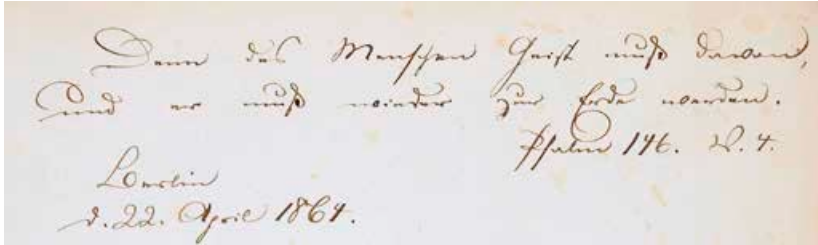 Denn des Menschen Geist muß davon,
und er muß wieder zur Erde werden.
Psalm 146. V. 4.
Berlin
d. 22. April 1864.